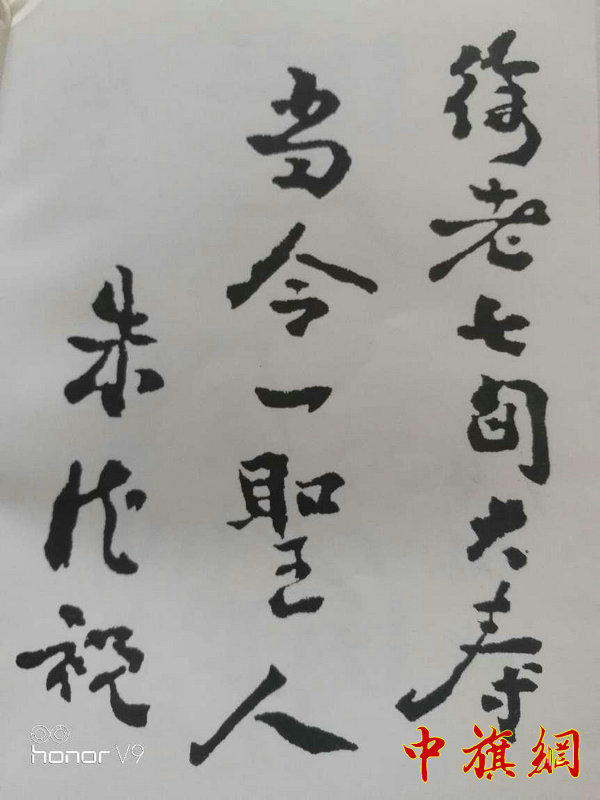 徐老七旬大寿
当今一聖人
朱德祝
honor V9
中旗網